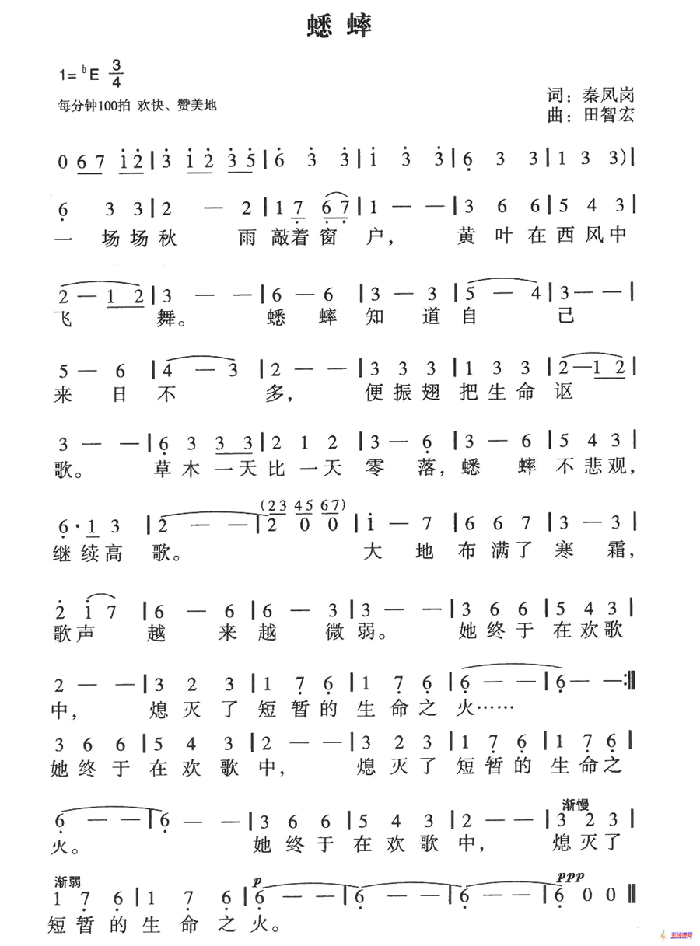 蟋蟀
1=ᵇE 3/4
每分钟100拍 欢快、赞美地
词：秦凤岗
曲：田智宏
0 6 7 1 2 | 3 1 2 3 5 | 6 3 3 | 1 3 3 | 6 3 3 | 1 3 3 ) |
6 3 3 | 2 — 2 | 1 7 6 7 | 1 — — | 3 6 6 | 5 4 3 |
一 场 场 秋 雨 敲着 窗 户， 黄 叶 在 西 风 中
2 — 1 2 | 3 — — | 6 — 6 | 3 — 3 | 5 — 4 | 3 — — |
飞 舞。 蟋 蟀 知 道 自 己
5 — 6 | 4 — 3 | 2 — — | 3 3 3 | 1 3 3 | 2 — 1 2 |
来 日 不 多， 便 振 翅 把 生 命 讴
3 — — | 6 3 3 3 | 2 1 2 | 3 — 6 | 6 — 6 | 5 4 3 |
歌。 草 木 一 天 比 一 天 零 落，蟋 蟀 不 悲 观，
(2 3 4 5 6 7)
6 · 1 3 | 2 — — | 2 0 0 | i — 7 | 6 6 7 | 3 — 3 |
继 续 高 歌。 大 地 布 满 了 寒 霜，
2 i 7 | 6 — 6 | 6 — 3 | 3 — — | 3 6 6 | 5 4 3 |
歌 声 越 来 越 微 弱。 她 终 于 在 欢 歌
2 — — | 3 2 3 | 1 7 6 | 1 7 6 | 6 — — | 6 — :||
中， 熄 灭 了 短 暂 的 生 命 之 火……
3 6 6 | 5 4 3 | 2 — — | 3 2 3 | 1 7 6 | 1 7 6 |
她 终 于 在 欢 歌 中， 熄 灭 了 短 暂 的 生 命 之
渐慢
6 — — | 6 — — | 3 6 6 | 5 4 3 | 2 — — | 3 2 3 |
火。 她 终 于 在 欢 歌 中， 熄 灭 了
渐弱 p ppp
1 7 6 | 1 7 6 | 6 — — | 6 — — | 6 — — | 6 0 0 ‖
短 暂 的 生 命 之 火。